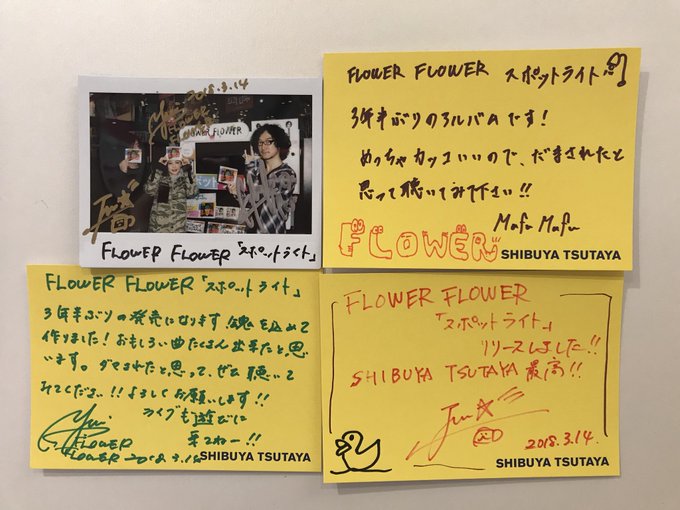 yui 2018.3.14
FLOWER
FLOWER
FLOWER FLOWER
FLOWER FLOWER「スポットライト」
FLOWER FLOWER スポットライト
3年半ぶりのアルバムです!
めっちゃカッコいいので、だまされたと
思って聴いてみて下さい!!
Mafu Mafu
FLOWER
SHIBUYA TSUTAYA
FLOWER FLOWER「スポットライト」
3年半ぶりの発売になります!魂を込めて
作りました!おもしろい曲たくさん出来たと思
います。ダマされたと思って、ぜひ聴いて
みてください!!よろしくお願いします!!
ライブも遊びに
来てねー!!
yui
FLOWER
FLOWER 2018.3.14
SHIBUYA TSUTAYA
FLOWER FLOWER
「スポットライト」
リリースしました!!
SHIBUYA TSUTAYA 最高!!
2018.3.14.
SHIBUYA TSUTAYA